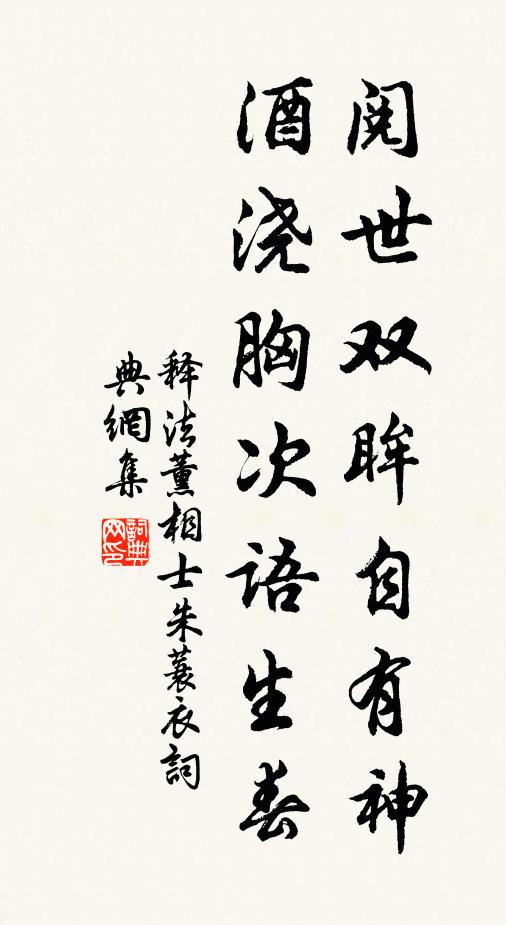 阅世双眸自有神
酒浇胸次语生春
释法薰相士朱蓑衣詞
典網集
詞典网印